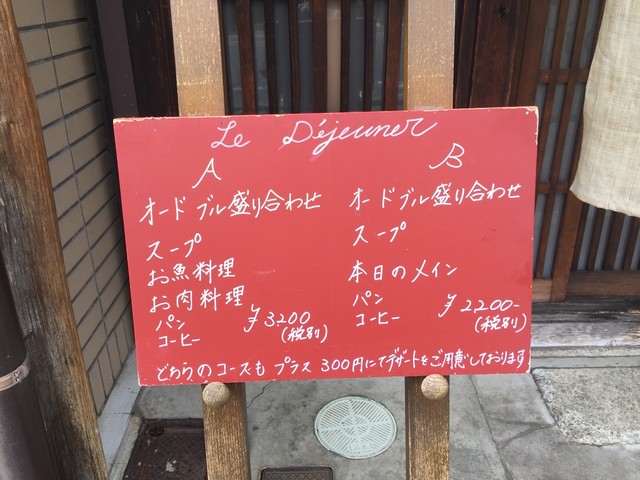 Le Déjeuner
A
オードブル盛り合わせ
スープ
お魚料理
お肉料理
パン
コーヒー
¥3200
(税別)
B
オードブル盛り合わせ
スープ
本日のメイン
パン
コーヒー
¥2,200-
(税別)
どちらのコースも プラス 300円にてデザートをご用意しております